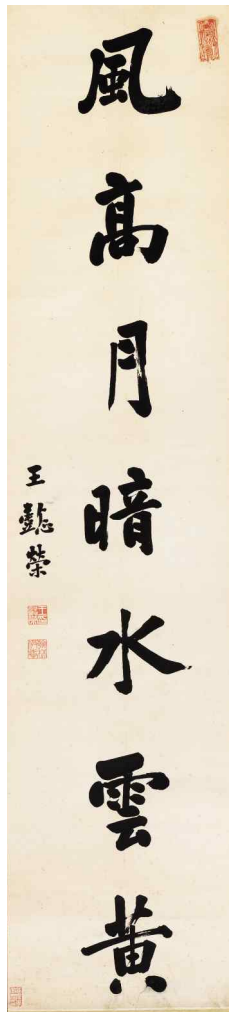 風高月暗水雲黃
王懿榮